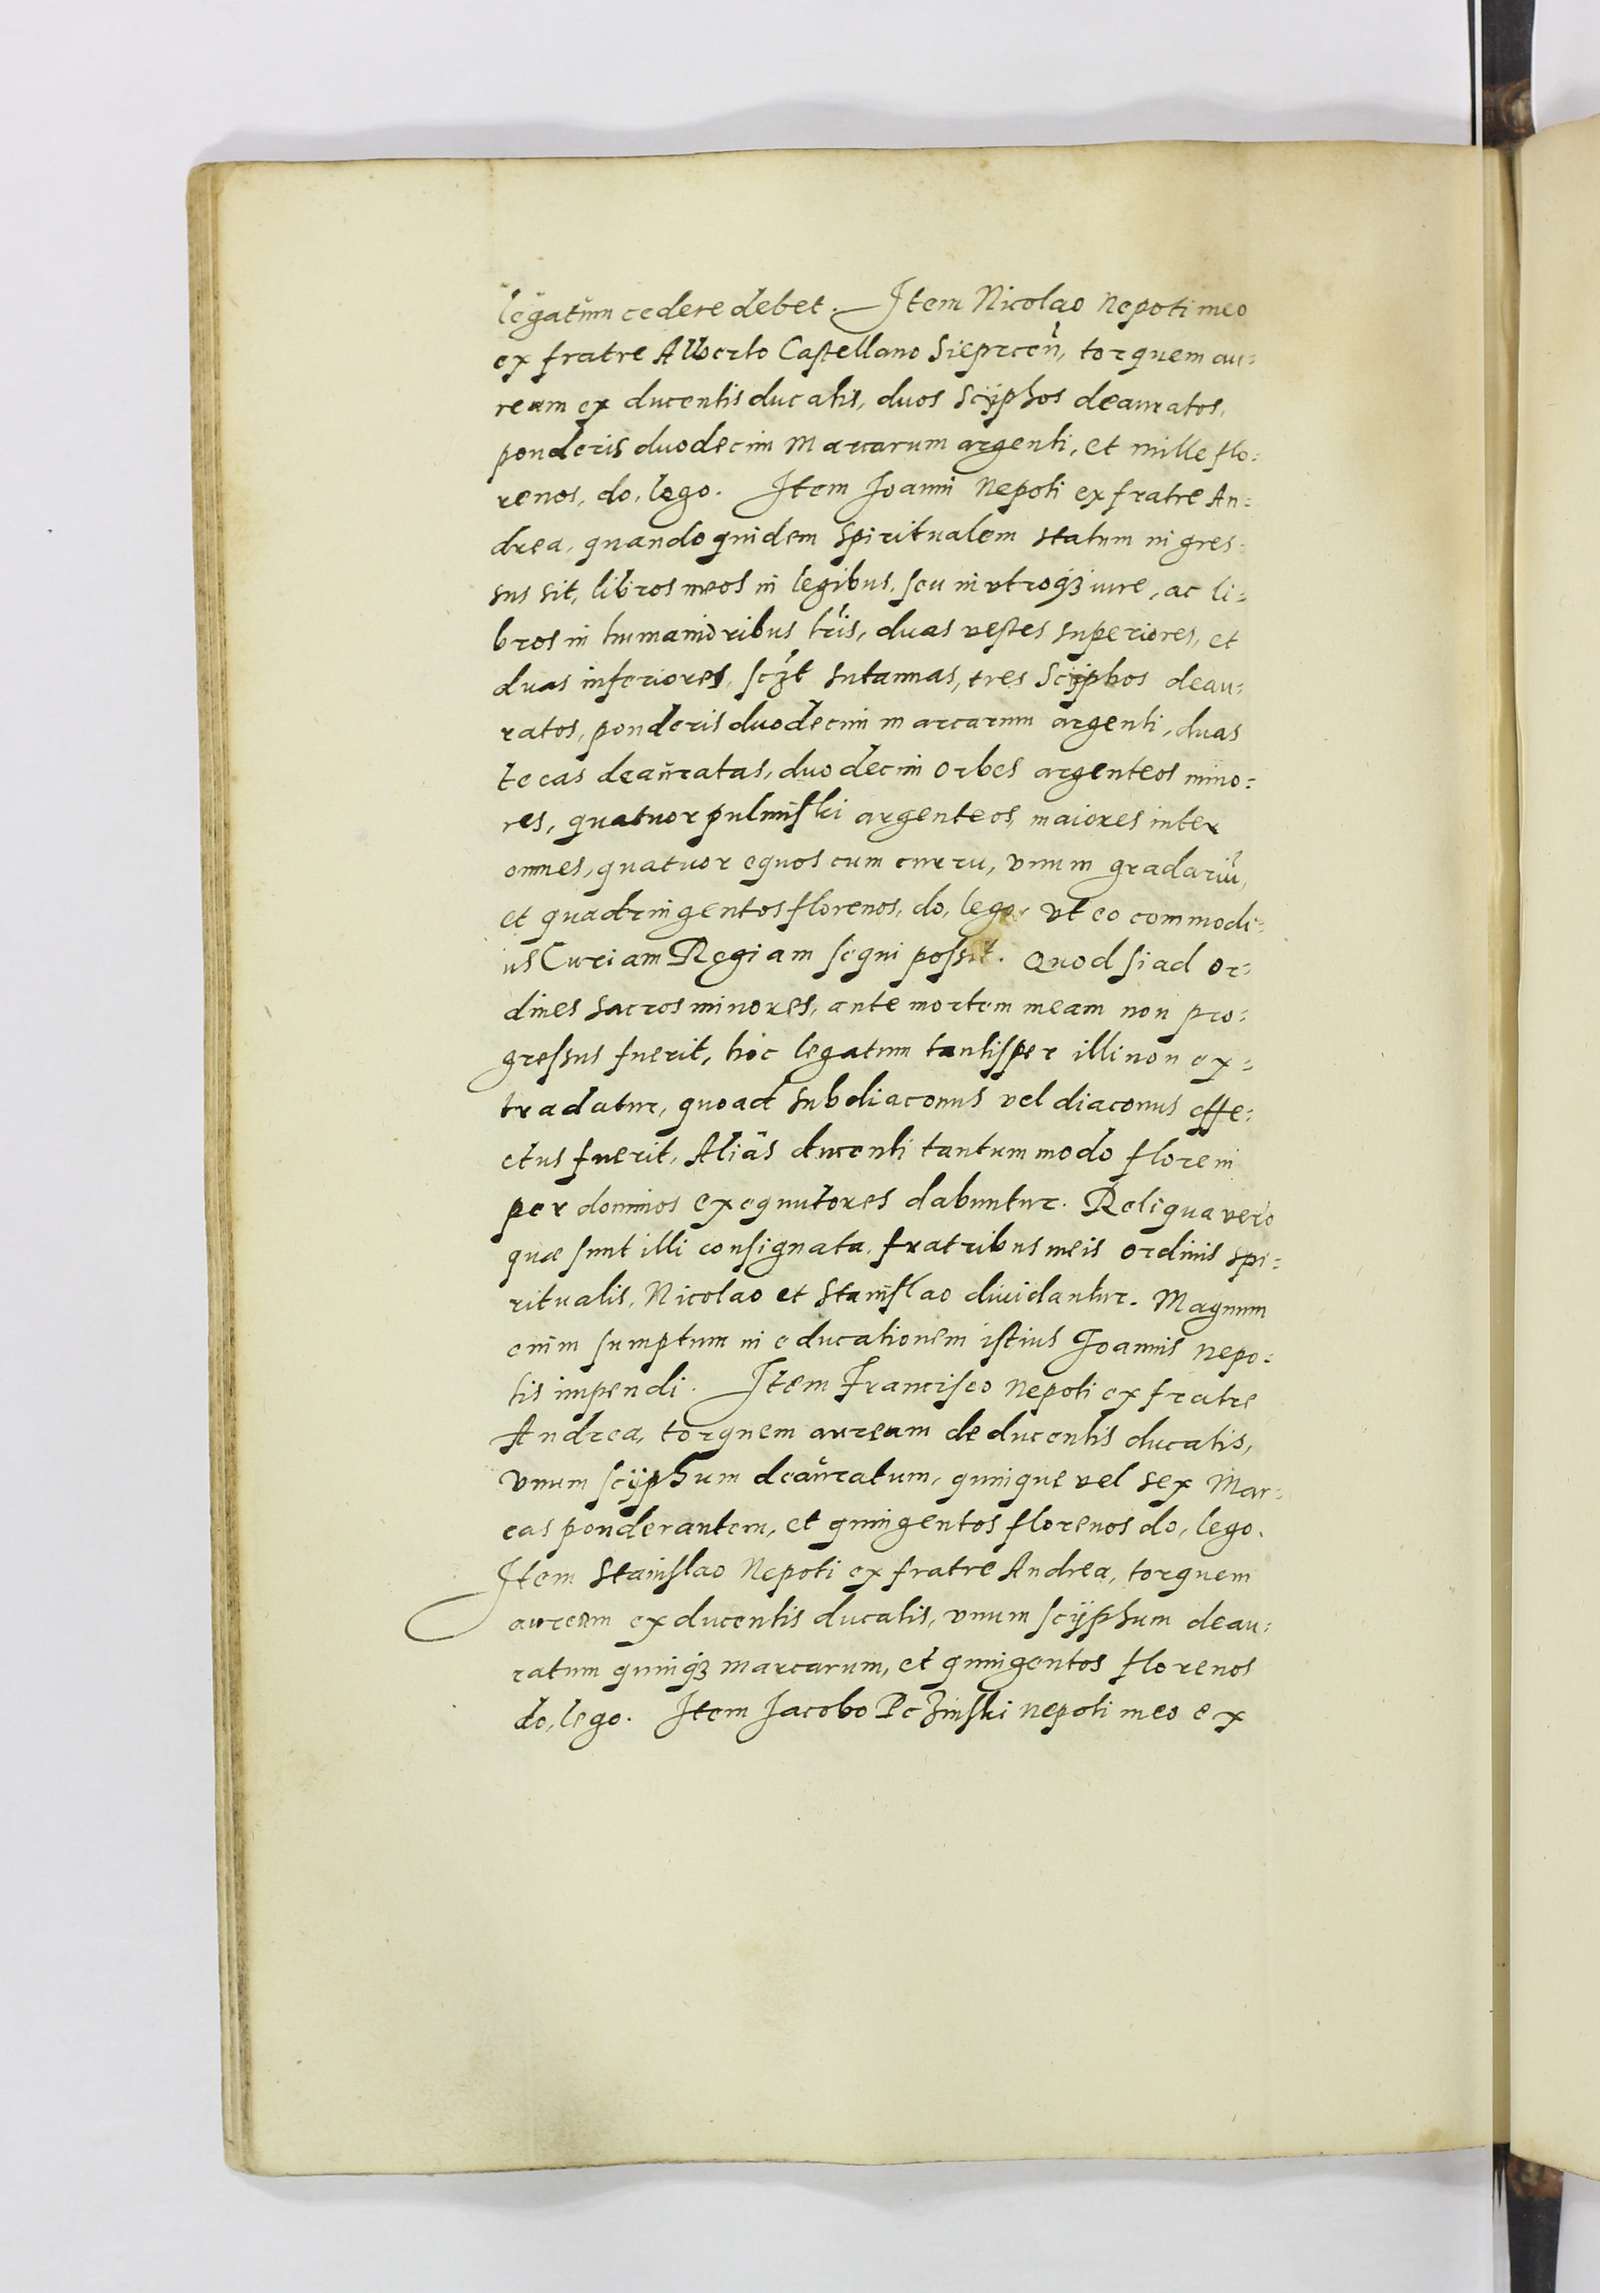 legatum cedere debet. Item Nicolao Nepoti meo
ex fratre Alberto Castellano Sieprcen̄, torquem au=
ream ex ducentis ducatis, duos Scÿphos deauratos,
ponderis duodecim Marcarum argenti, et mille flo=
renos, do, lego. Item Joanni Nepoti ex fratre An=
drea, quandoquidem spiritualem statum ingres=
sus sit, libros meos in legibus, seu in vtroqȝ iure, ac li=
bros in humanioribus lr̄is, duas vestes superiores, et
duas inferiores, sczt sutannas, tres Scÿphos deau=
ratos, ponderis duodecim marcarum argenti, duas
tecas deauratas, duodecim orbes argenteos mino=
res, quatuor pulmiski argenteos, maiores inter
omnes, quatuor equos cum curru, vnum gradariū,
et quadringentos florenos, do, lego, vt eo commodi=
us Curiam Regiam sequi possit. Quod si ad or=
dines sacros minores, ante mortem meam non pro=
gressus fuerit, hoc legatum tantisper illi non ex=
tradatur, quoad subdiaconus vel diaconus effe=
ctus fuerit, Aliâs ducenti tantummodo floreni
per dominos exequutores dabuntur. Reliqua vero
quæ sunt illi consignata, fratribus meis ordinis spi=
ritualis, Nicolao et Stanislao diuidantur. Magnum
enim sumptum in educationem istius Joannis Nepo=
tis impendi. Item Francisco Nepoti ex fratre
Andrea, torquem auream de ducentis ducatis,
vnum scÿphum deauratum, quinque vel sex Mar=
cas ponderantem, et quingentos florenos do, lego.
Item Stanislao Nepoti ex fratre Andrea, torquem
auream ex ducentis ducatis, vnum scÿphum deau=
ratum quinqȝ marcarum, et quingentos florenos
do, lego. Item Jacobo Pczinski nepoti meo ex